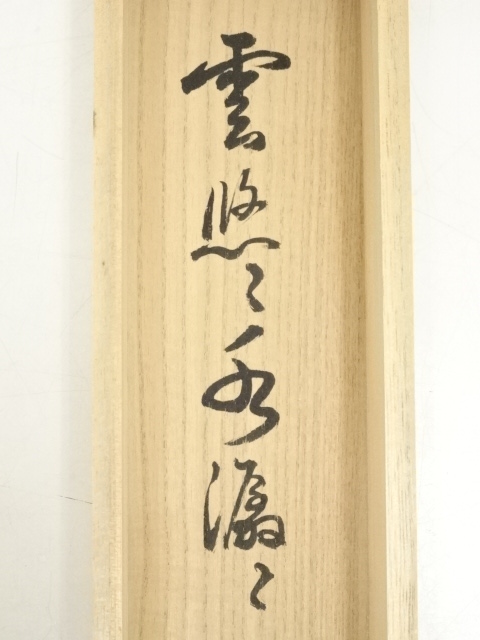 雲悠々水潺々